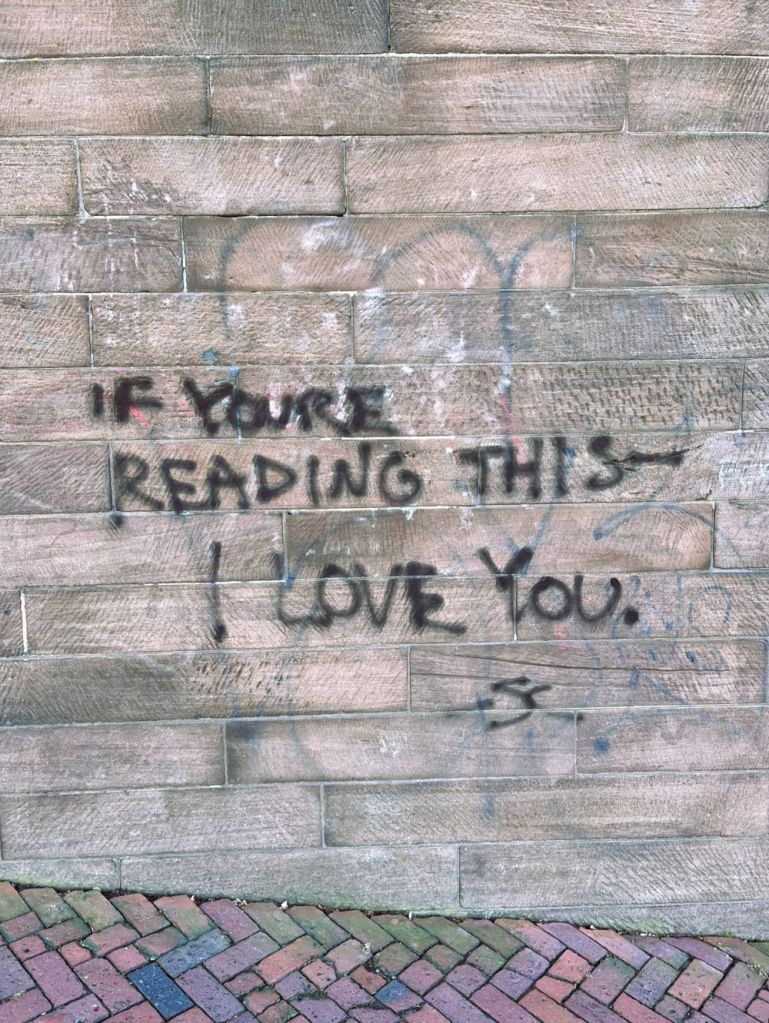 IF YOURE
READING THIS—
I LOVE YOU.